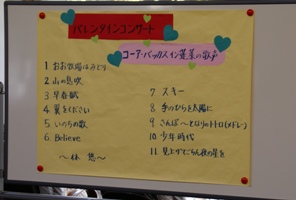 バレンタインコンサート
コーア・バックス イン 蓬莱の歌声
1 おお牧場はみどり
2 山の息吹
3 早春賦
4 翼をください
5 いのちの歌
6 Believe
～休憩～
7 スキー
8 手のひらを太陽に
9 さんぽ～となりのトトロ(メドレー)
10 少年時代
11 見上げてごらん夜の星を